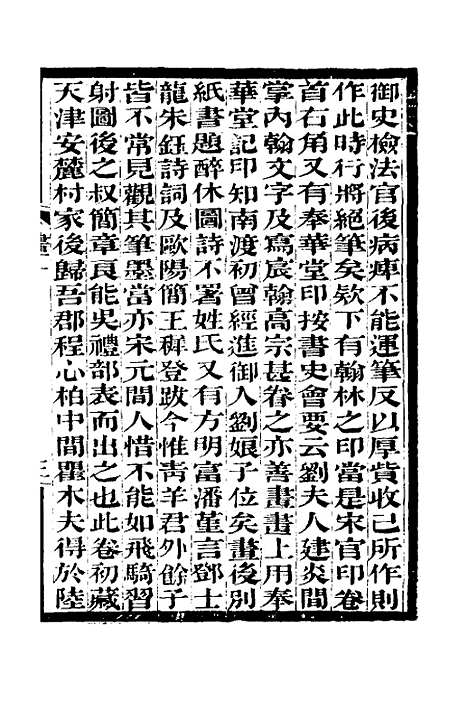 御史檢法官後病痺不能運筆反以厚貲收己所作則
作此時行將絕筆矣欵下有翰林之印當是宋官印卷
首右角又有奉華堂印按書史會要云劉夫人建炎間
掌內翰文字及寫宸翰高宗甚眷之亦善畫畫上用奉
華堂記印知南渡初曾經進御人劉娘子位矣畫後別
紙書題醉休圖詩不署姓氏又有方明富潘堇言鄧士
龍朱鈺詩詞及歐陽簡王穉登跋今惟靑羊君外餘子
皆不常見觀其筆墨當亦宋元間人惜不能如飛騎習
射圖後之叔簡章良能吳禮部表而出之也此卷初藏
天津安麓村家後歸吾郡程心柏中間瞿木夫得於陸
畫一